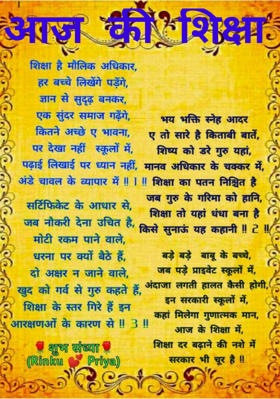 आज की शिक्षा
शिक्षा है मौलिक अधिकार,
हर बच्चे लिखेंगे पढ़ेंगे,
ज्ञान से सुदृढ़ बनकर,
एक सुंदर समाज गढ़ेंगे,
कितने अच्छे ए भावना,
पर देखा नहीं स्कूलों में,
पढ़ाई लिखाई पर ध्यान नहीं,
अंडे चावल के व्यापार में !! 1 !!
सर्टिफिकेट के आधार से,
जब नौकरी देना उचित है,
मोटी रकम पाने वाले,
धरना पर क्यों बैठे हैं,
दो अक्षर न जाने वाले,
खुद को गर्व से गुरु कहते हैं,
शिक्षा के स्तर गिरे हैं इन
आरक्षणओं के कारण से !! 3 !!
शुभ संध्या
(Rinku 💕 Priya)
भय भक्ति स्नेह आदर
ए तो सारे है किताबी बातें,
शिष्य को डरे गुरु यहां,
मानव अधिकार के चक्कर में,
शिक्षा का पतन निश्चित है
जब गुरु के गरिमा को हानि,
शिक्षा तो यहां धंधा बना है
किसे सुनाऊं यह कहानी !! 2 !!
बड़े बड़े बाबू के बच्चे,
जब पड़े प्राइवेट स्कूलों में,
अंदाजा लगती हालत कैसी होगी,
इन सरकारी स्कूलों में,
कहां मिलेगा गुणात्मक मान,
आज के शिक्षा में,
शिक्षा दर बढ़ाने की नशे में
सरकार भी चूर है !!